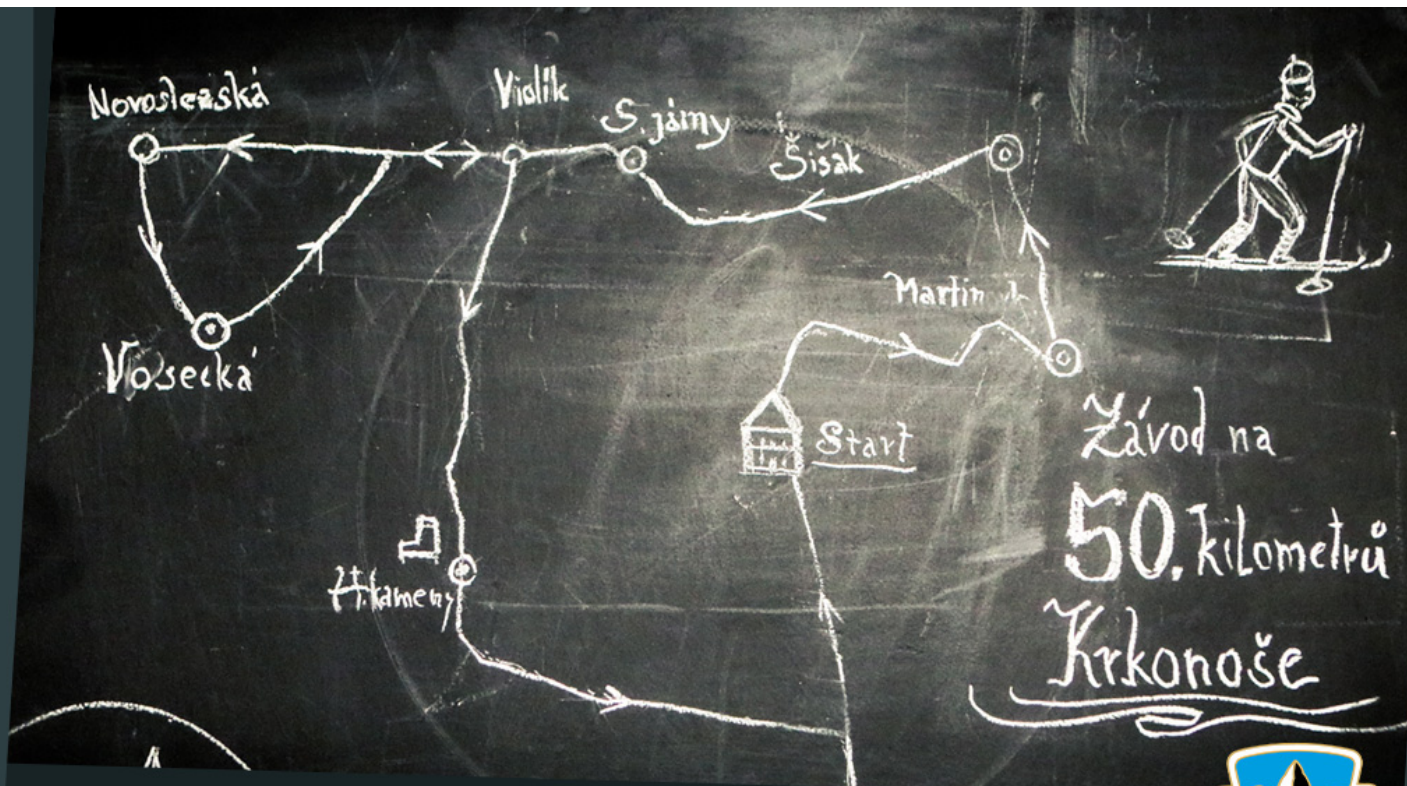 Novoslezská
Violík
S. jámy
Šišák
Vosecká
Start
H. kameny
Závod na
50. kilometrů
Krkonoše